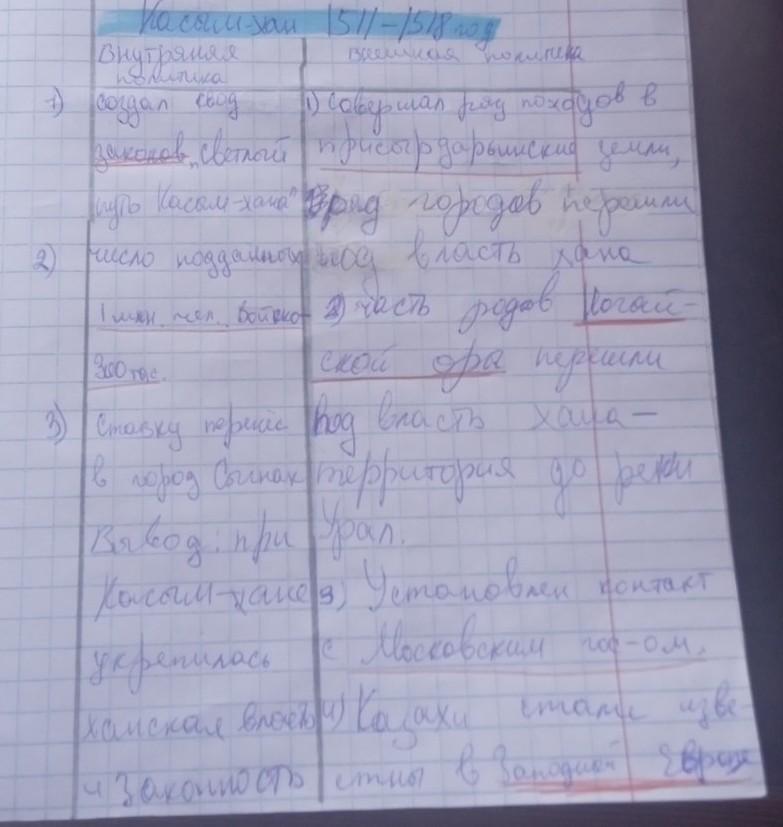 Касым-хан 1511-1518 год
Внутряняя политика
1) создал свод
законов „светлый
путь Касым-хана"
2) число подданных
1 млн. чел. Войско
300 тыс.
3) Ставку перенёс
в город Сыгнак
Вывод: при
Касым-хане
укрепилась
ханская власть
и Законность
внешняя политика
1) Совершал ряд походов в
присырдарьинские земли,
ряд городов перешли
под власть хана
2) часть родов Ногай-
ской орды перешли
под власть хана —
территория до реки
Урал.
3) Установлен контакт
с Московским гос-ом.
4) Казахи стали изве-
стны в Западной Европе